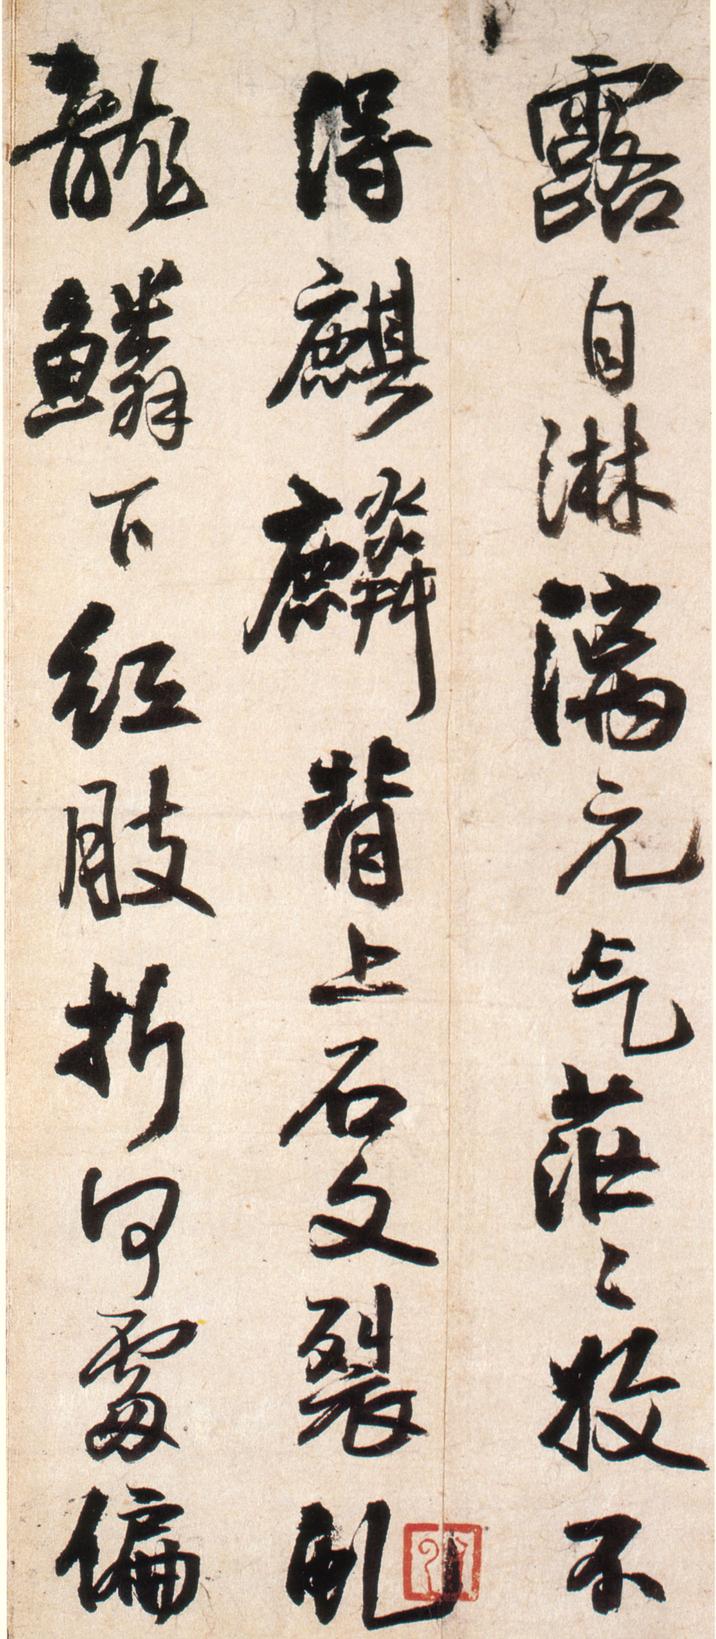 露自淋漓元气茫〻收不
得麒麟背上石文裂虬
龍鱗下红肢折何處偏